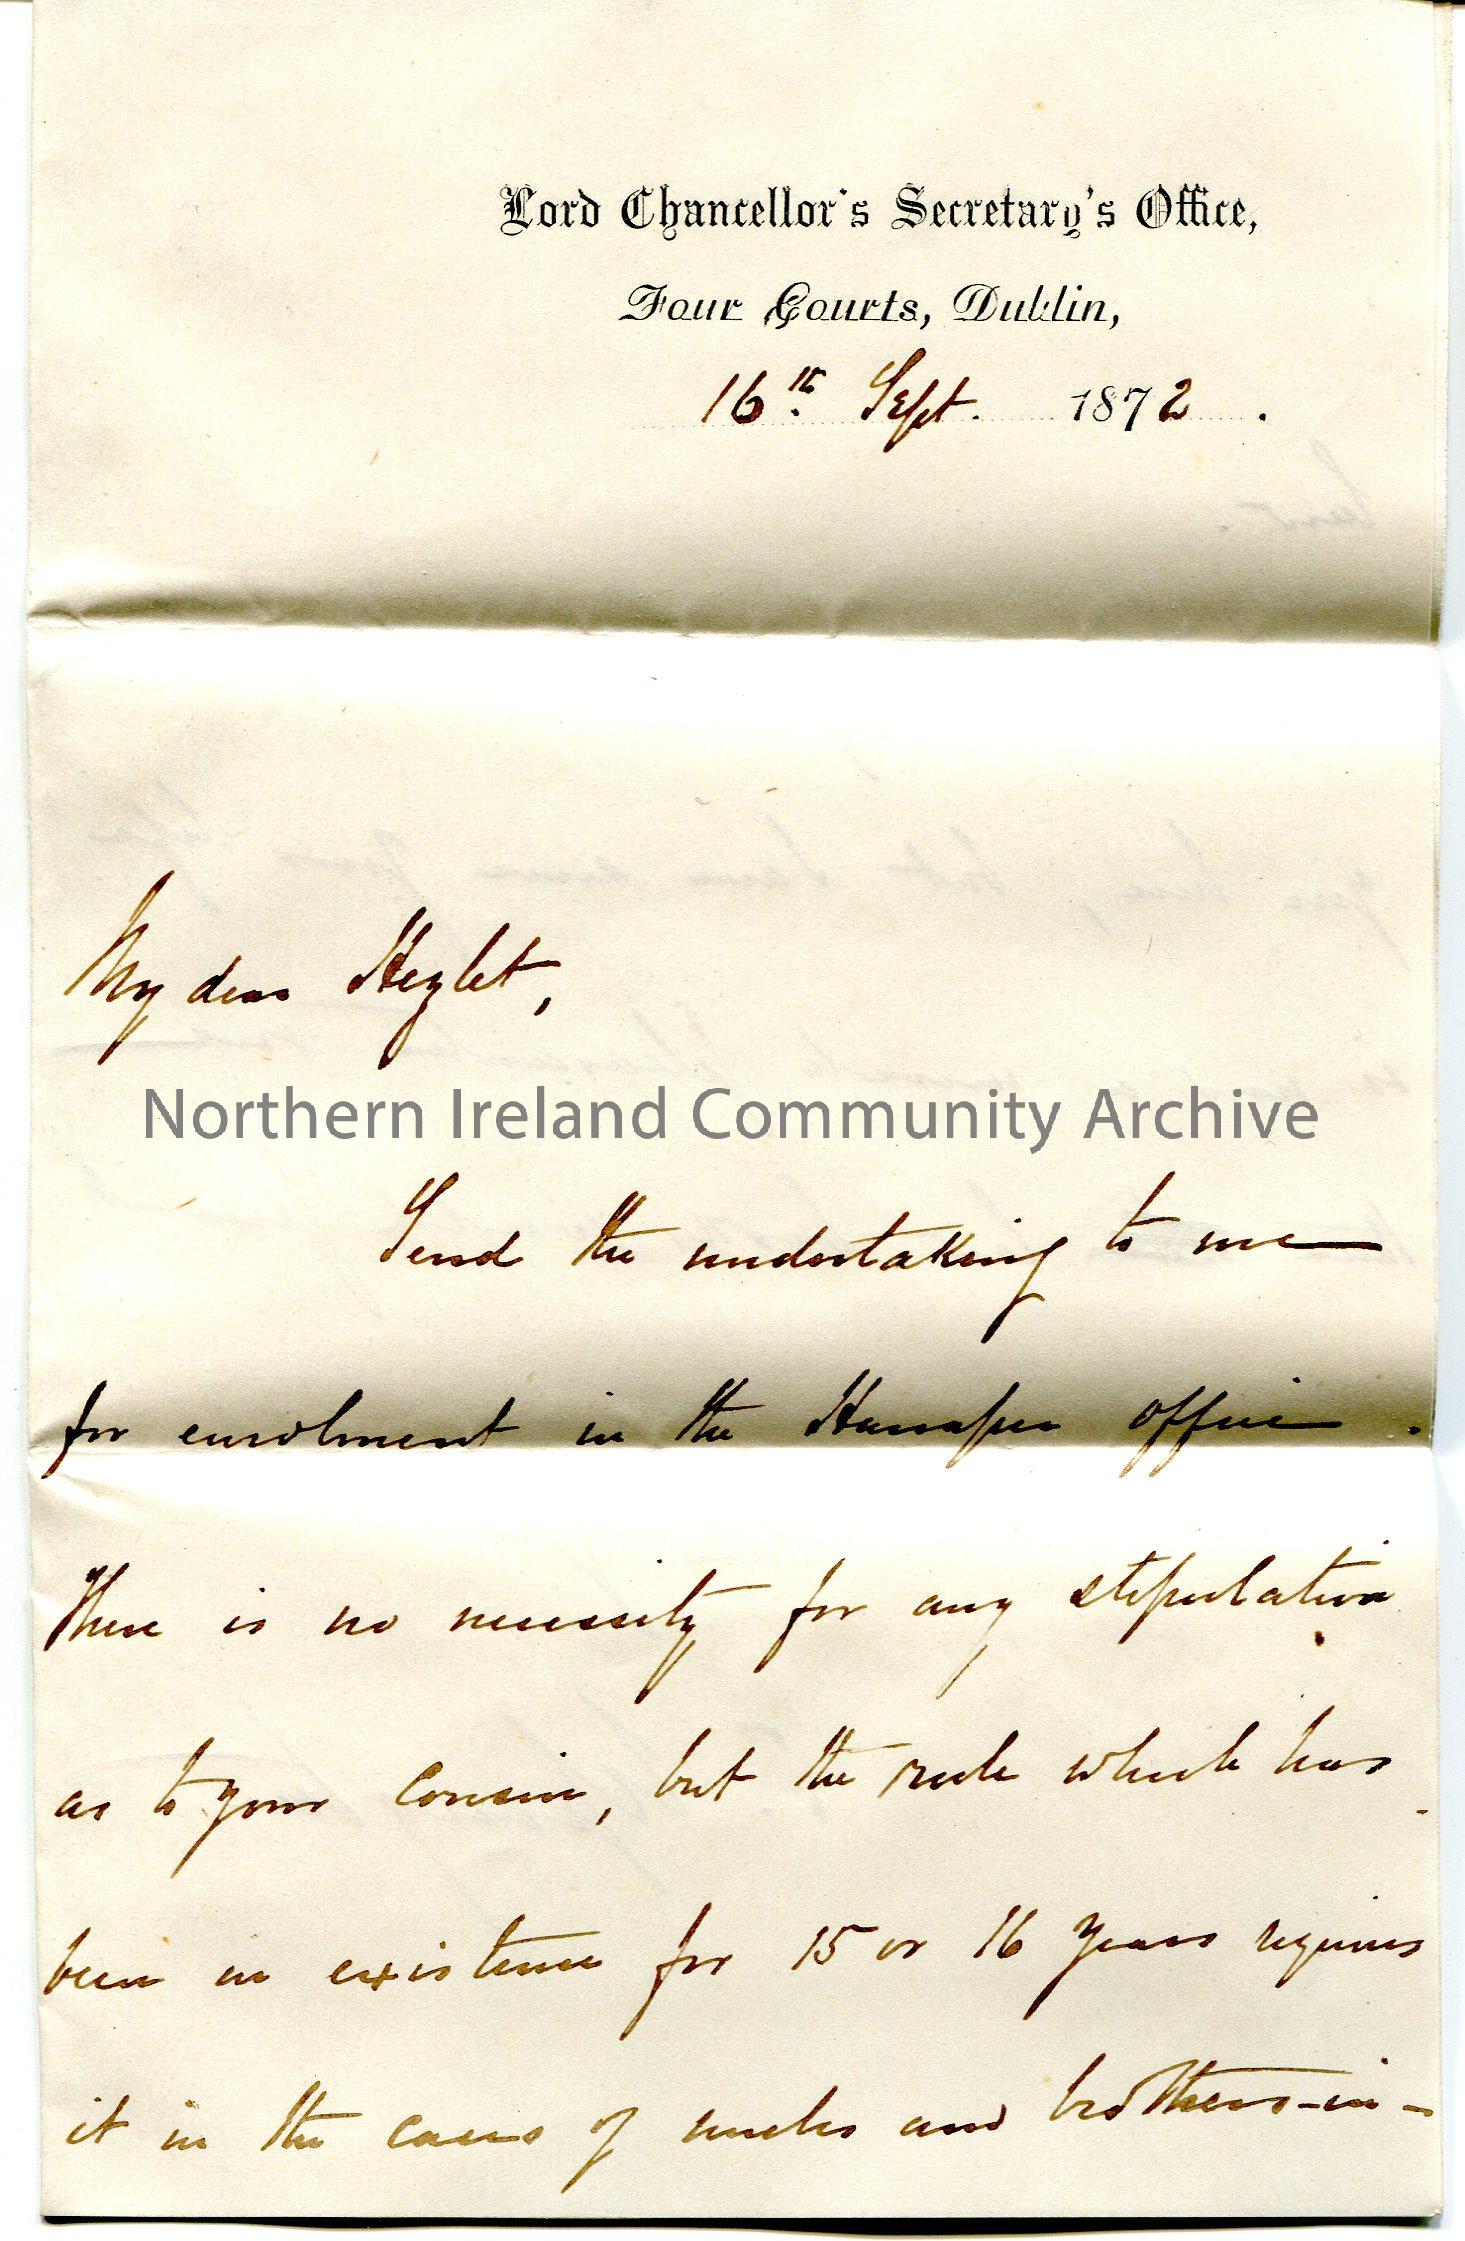 Lord Chancellor's Secretary's Office,
Four Courts, Dublin,
16th Sept. 1872.
My dear Hezlet,
Northern Ireland Community Archive
Send the undertaking to me
for enrolment in the Hanaper office.
There is no necessity for any stipulation
as to your cousin, but the rule which has
been in existence for 15 or 16 years requires
it in the cases of uncles and brothers-in-